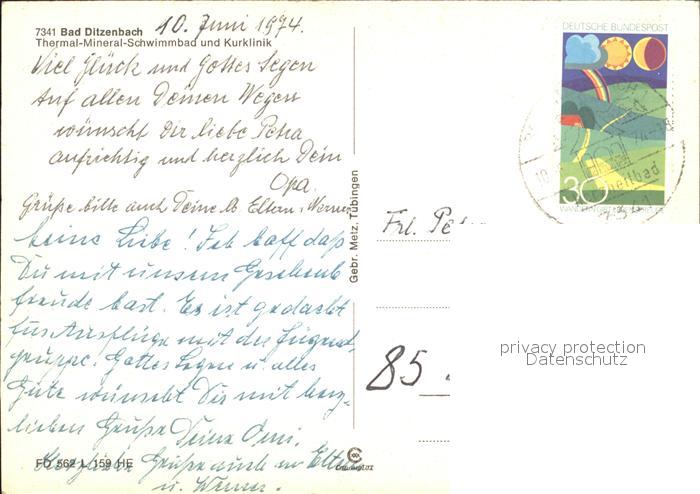 7341 Bad Ditzenbach
Thermal-Mineral-Schwimmbad und Kurklinik
10. Juni 1974.
Viel Glück und Gottes Segen
Auf allen Deinen Wegen
wünscht Dir liebe Petra
aufrichtig und herzlich Dein
Opa.
Grüße bitte auch Deine lb Eltern u. Werner
Liebe! Ich hoff daß
Du mit unserm Geschenk
freude hast. Es ist gedacht
für Ausflüge mit der Jugend-
gruppe. Gottes Segen u. alles
Gute wünscht Dir mit herz-
lichen Grüße Deine Omi.
Herzliche Grüße auch an Eltern
u. Werner.
FD 562 L 159 HE
Gebr. Metz, Tübingen
DEUTSCHE BUNDESPOST
30
Frl. Pe
85
privacy protection
Datenschutz